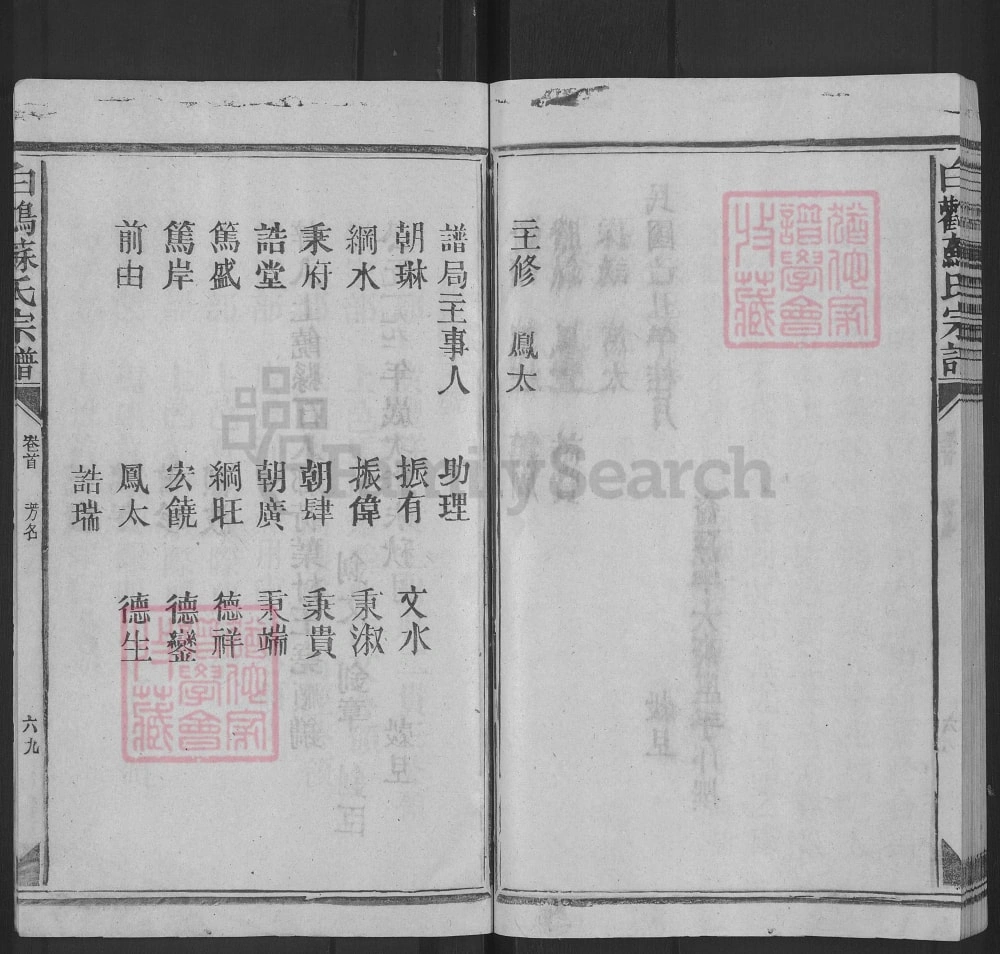 白鸛蘇氏宗譜
猶他家譜學會收藏
主修 鳳太
譜局主事人 助理
朝琳 振有 文水
綱水 振偉 秉淑
秉府 朝肆 秉貴
誥堂 朝廣 秉端
篤盛 綱旺 德祥
篤岸 宏饒 德鑾
前由 鳳太 德生
誥瑞
猶他家譜學會收藏
白鸛蘇氏宗譜
卷首 芳名 六九
FamilySearch